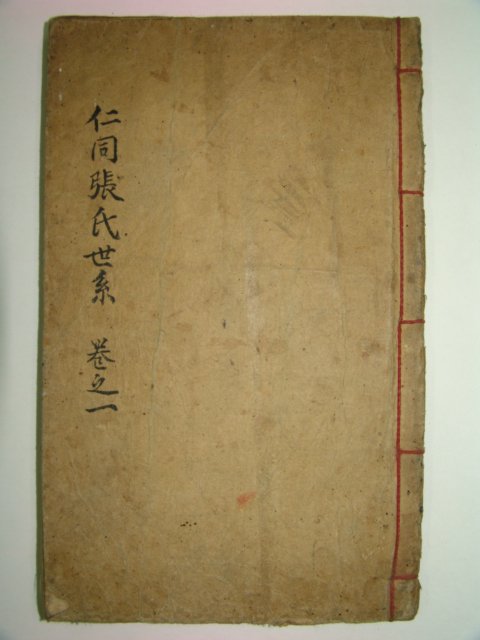 仁同張氏世系 卷之一